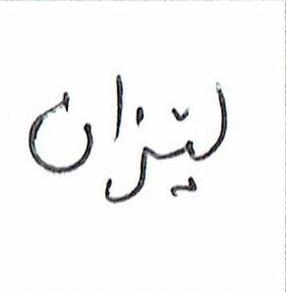 لێزان